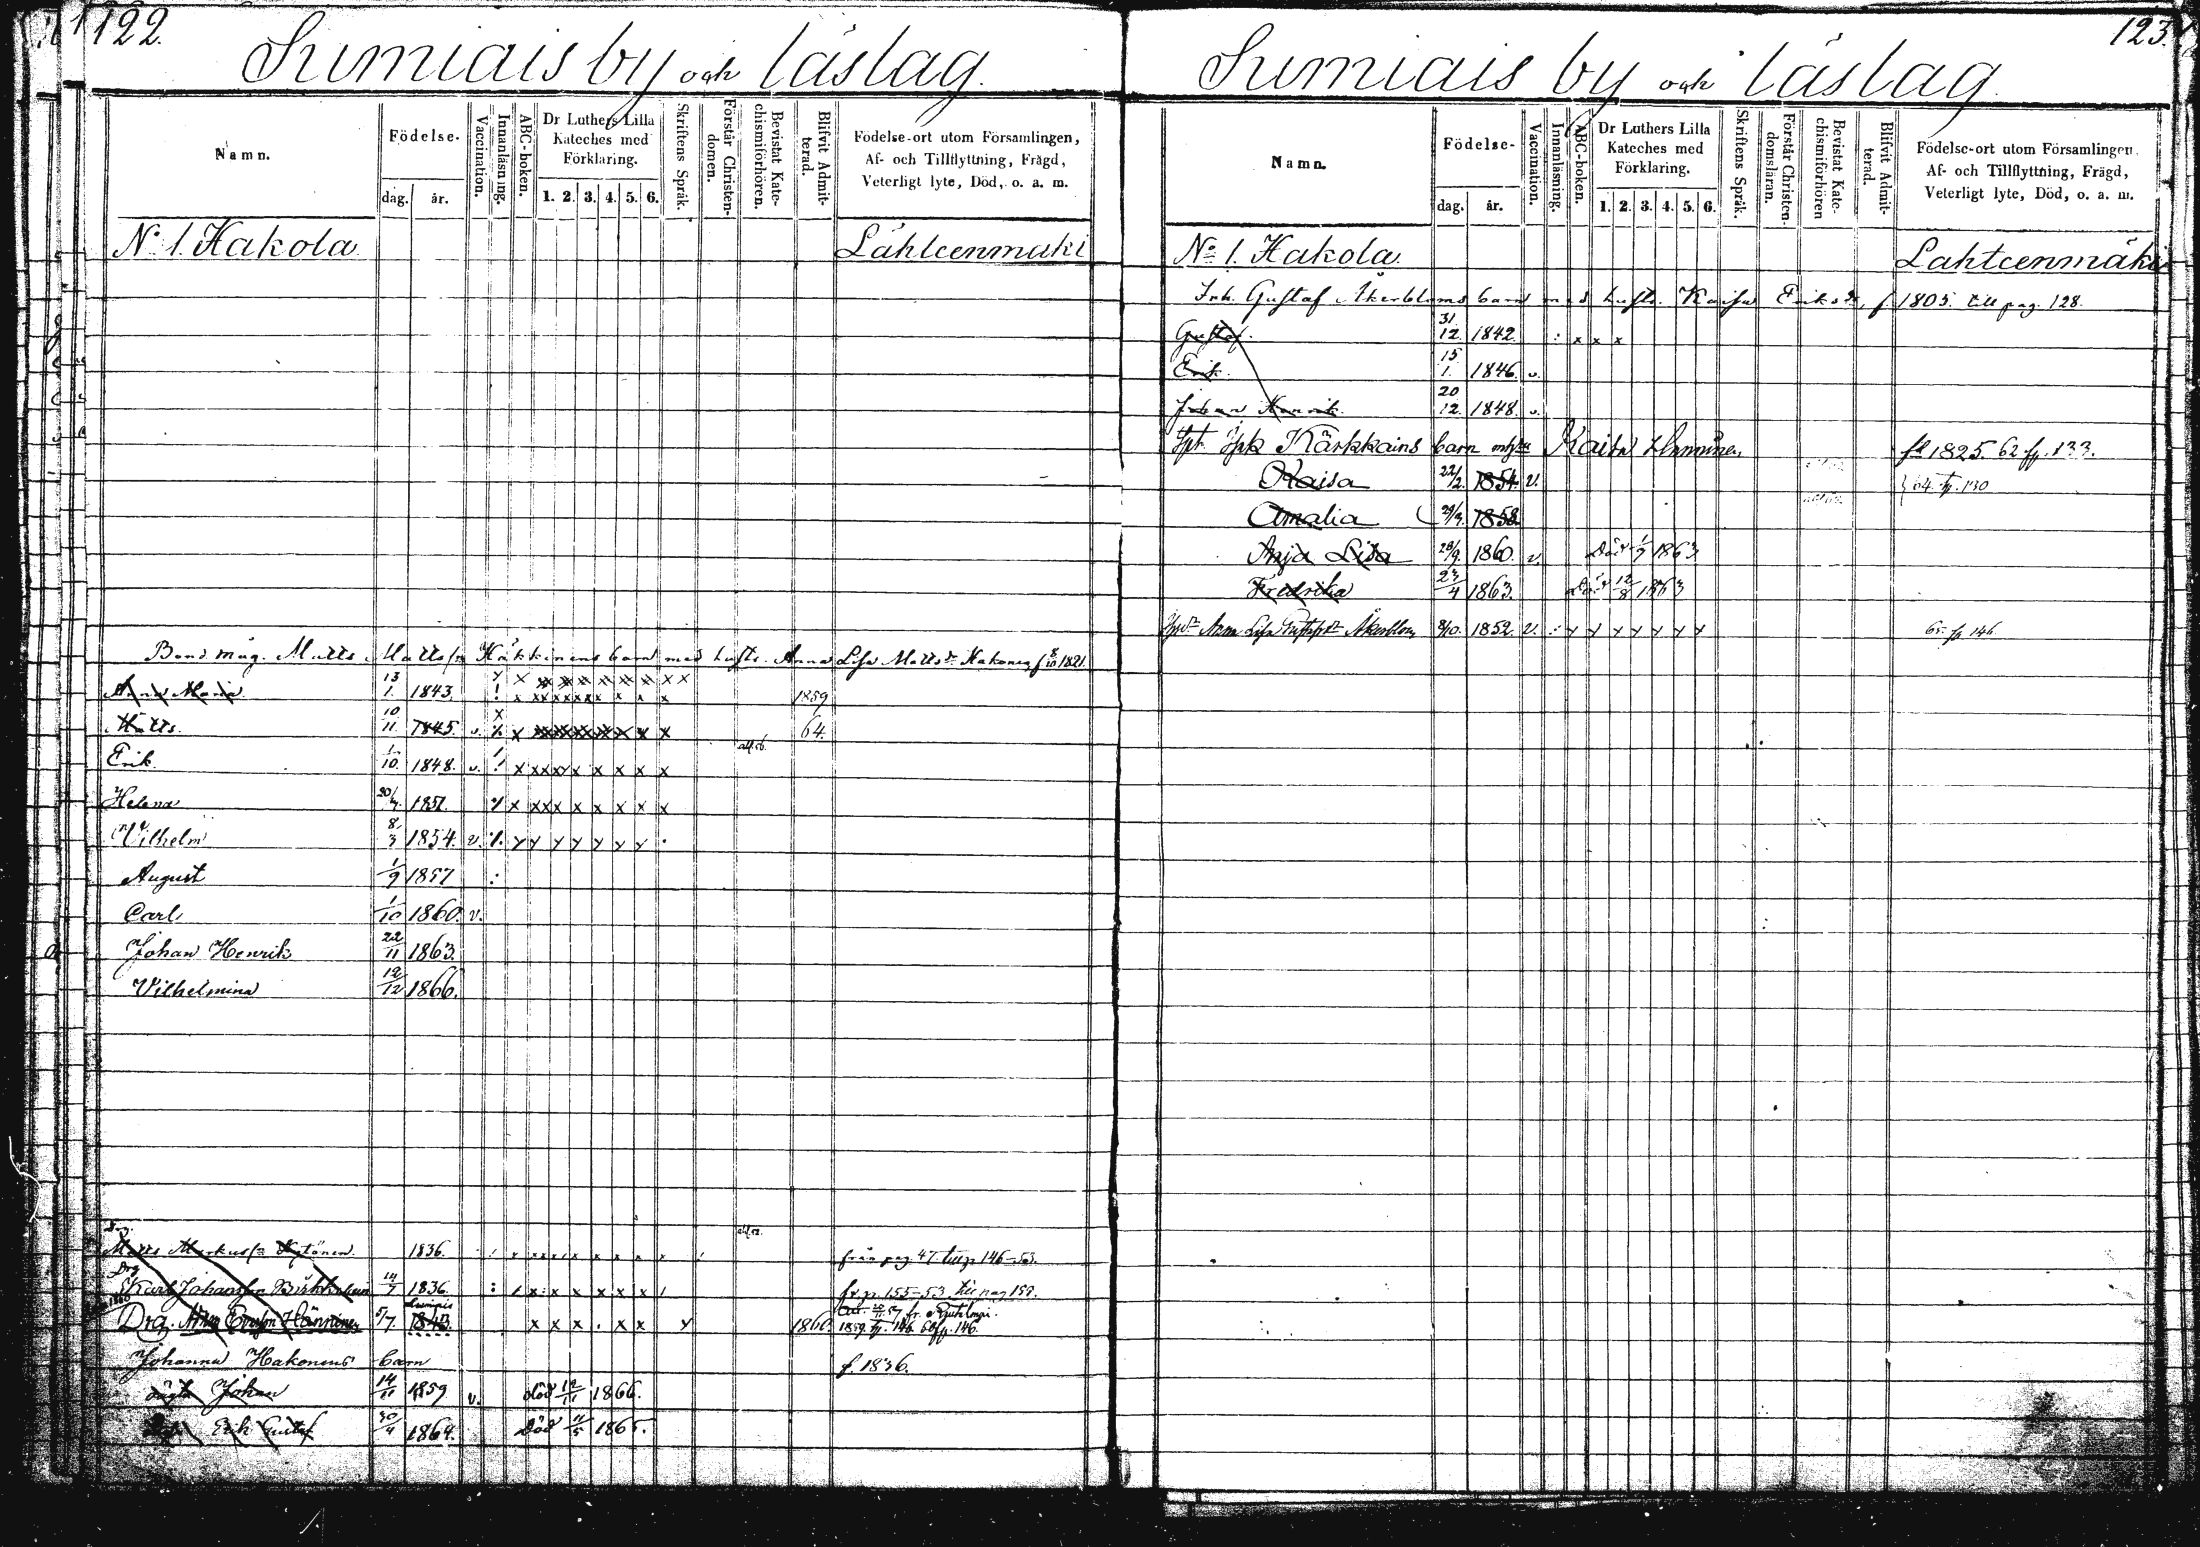 122.
Sumiais by och läslag.
Namn.
Födelse-
dag. år.
Vaccination.
Innanläsning.
ABC-boken.
Dr Luthers Lilla Kateches med Förklaring.
1. 2. 3. 4. 5. 6.
Skriftens Språk.
Förstår Christen-domen.
Bevistat Kate-chismiförhören.
Blifvit Admit-terad.
Födelse-ort utom Församlingen,
Af- och Tillflyttning, Frägd,
Veterligt lyte, Död, o. a. m.
No 1. Hakola Lähteenmäki
Matts Mattss:n Häkkinens barn med hustr. Anna Lisa Mattsdr Hakonen f 8/10 1821.
Anna Maria 13 1. 1843. 1859
Matts. 10 11. 1845. v. 64.
Erik 1 10. 1848. v.
Helena 20/4. 1851.
Vilhelm 8 3 1854. v.
August 1/9 1857
Carl 1/10 1860. v.
Johan Henrik 22/11 1863.
Vilhelmina 12/12 1866.
Matts Markuss:n Kytönen. 1836. från pag. 47. till p. 146-53.
Drg Karl Johansson 1836. fr p. 155-53 till pag 159.
Drg. Hänninen 5/7. 1843. 1860. 1859 fp. 146. 60 fp. 146.
Johanna Hakonens barn f 1836.
Johan 14 1859 v. död 1866.
Erik Gustaf 30/4 1864. Död 11/5 1865.
123.
Sumiais by och läslag.
Namn.
Födelse-
dag. år.
Vaccination.
Innanläsning.
ABC-boken.
Dr Luthers Lilla Kateches med Förklaring.
1. 2. 3. 4. 5. 6.
Skriftens Språk.
Förstår Christen-domsläran.
Bevistat Kate-chismiförhören
Blifvit Admit-terad.
Födelse-ort utom Församlingen,
Af- och Tillflyttning, Frägd,
Veterligt lyte, Död, o. a. m.
No 1. Hakola. Lahteenmäki
Inh. Gustaf Åkerbloms barn med hustr. Kaisa Eriksdr, f 1805. till pag. 128.
Gustaf. 31 12. 1842.
Erik. 15 1. 1846. v.
Johan Henrik 20 12. 1848. v.
Kärkkains barn Kaisa fd 1825. 62 fp. 133.
Kaisa 22/2. 1854. v. 64. fp. 130
Amalia 29/9. 1858
Anja Lisa 28/9. 1860. v. Död 1/7 1863
Fredrika 23/4 1863. Död 12/8 1863
Anna Lisa Åkerblom 8/10. 1852. v. 65. fp 146